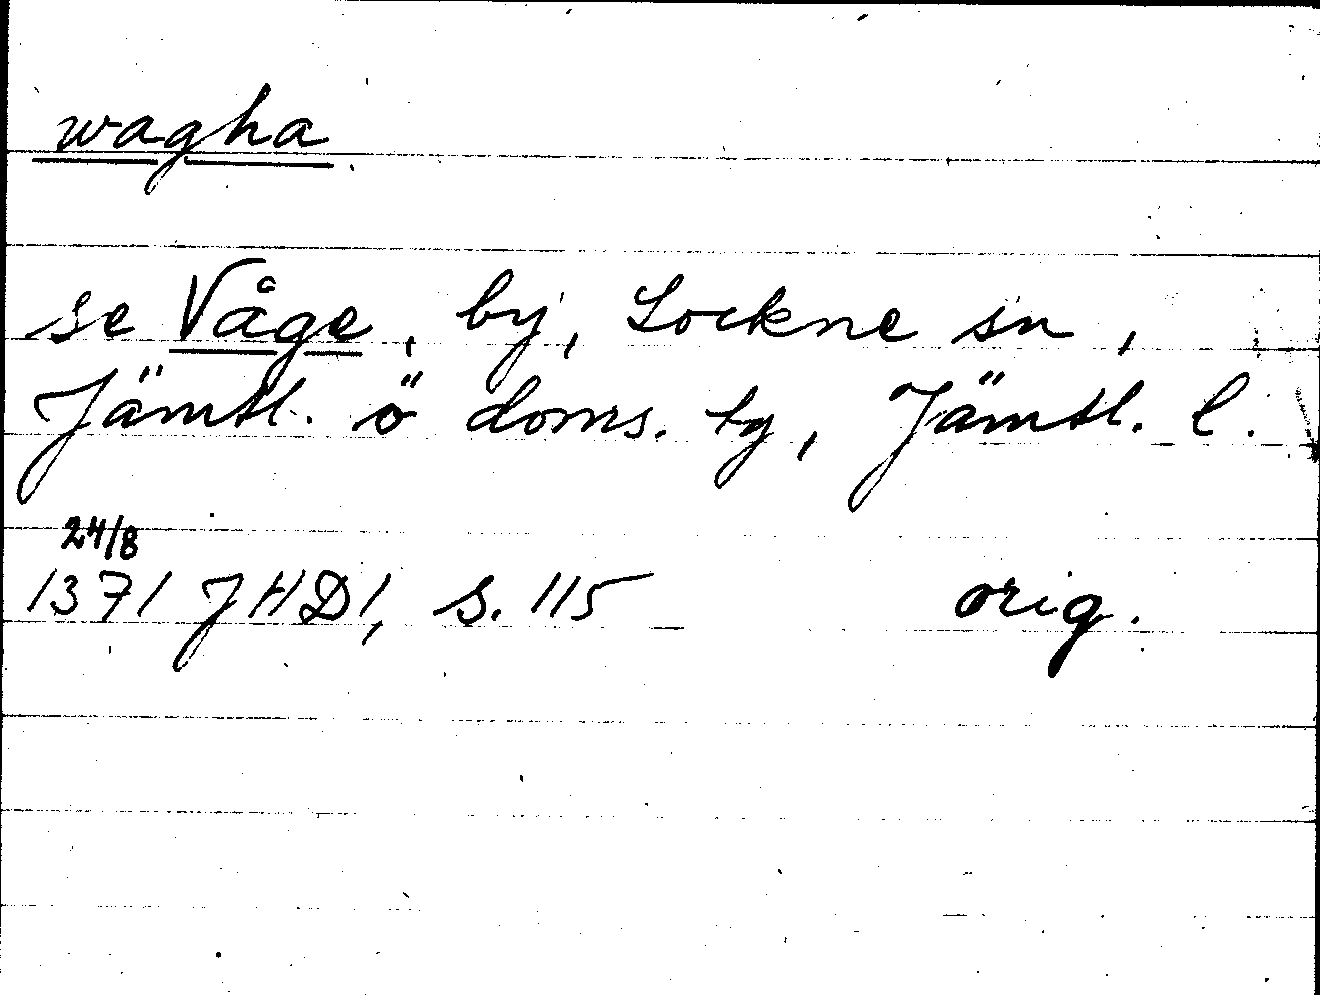 wagha
se Våge, by, Lockne sn,
Jämtl. ö doms. tg, Jämtl. l.
24/8
1371 JHD1, s. 115 orig.